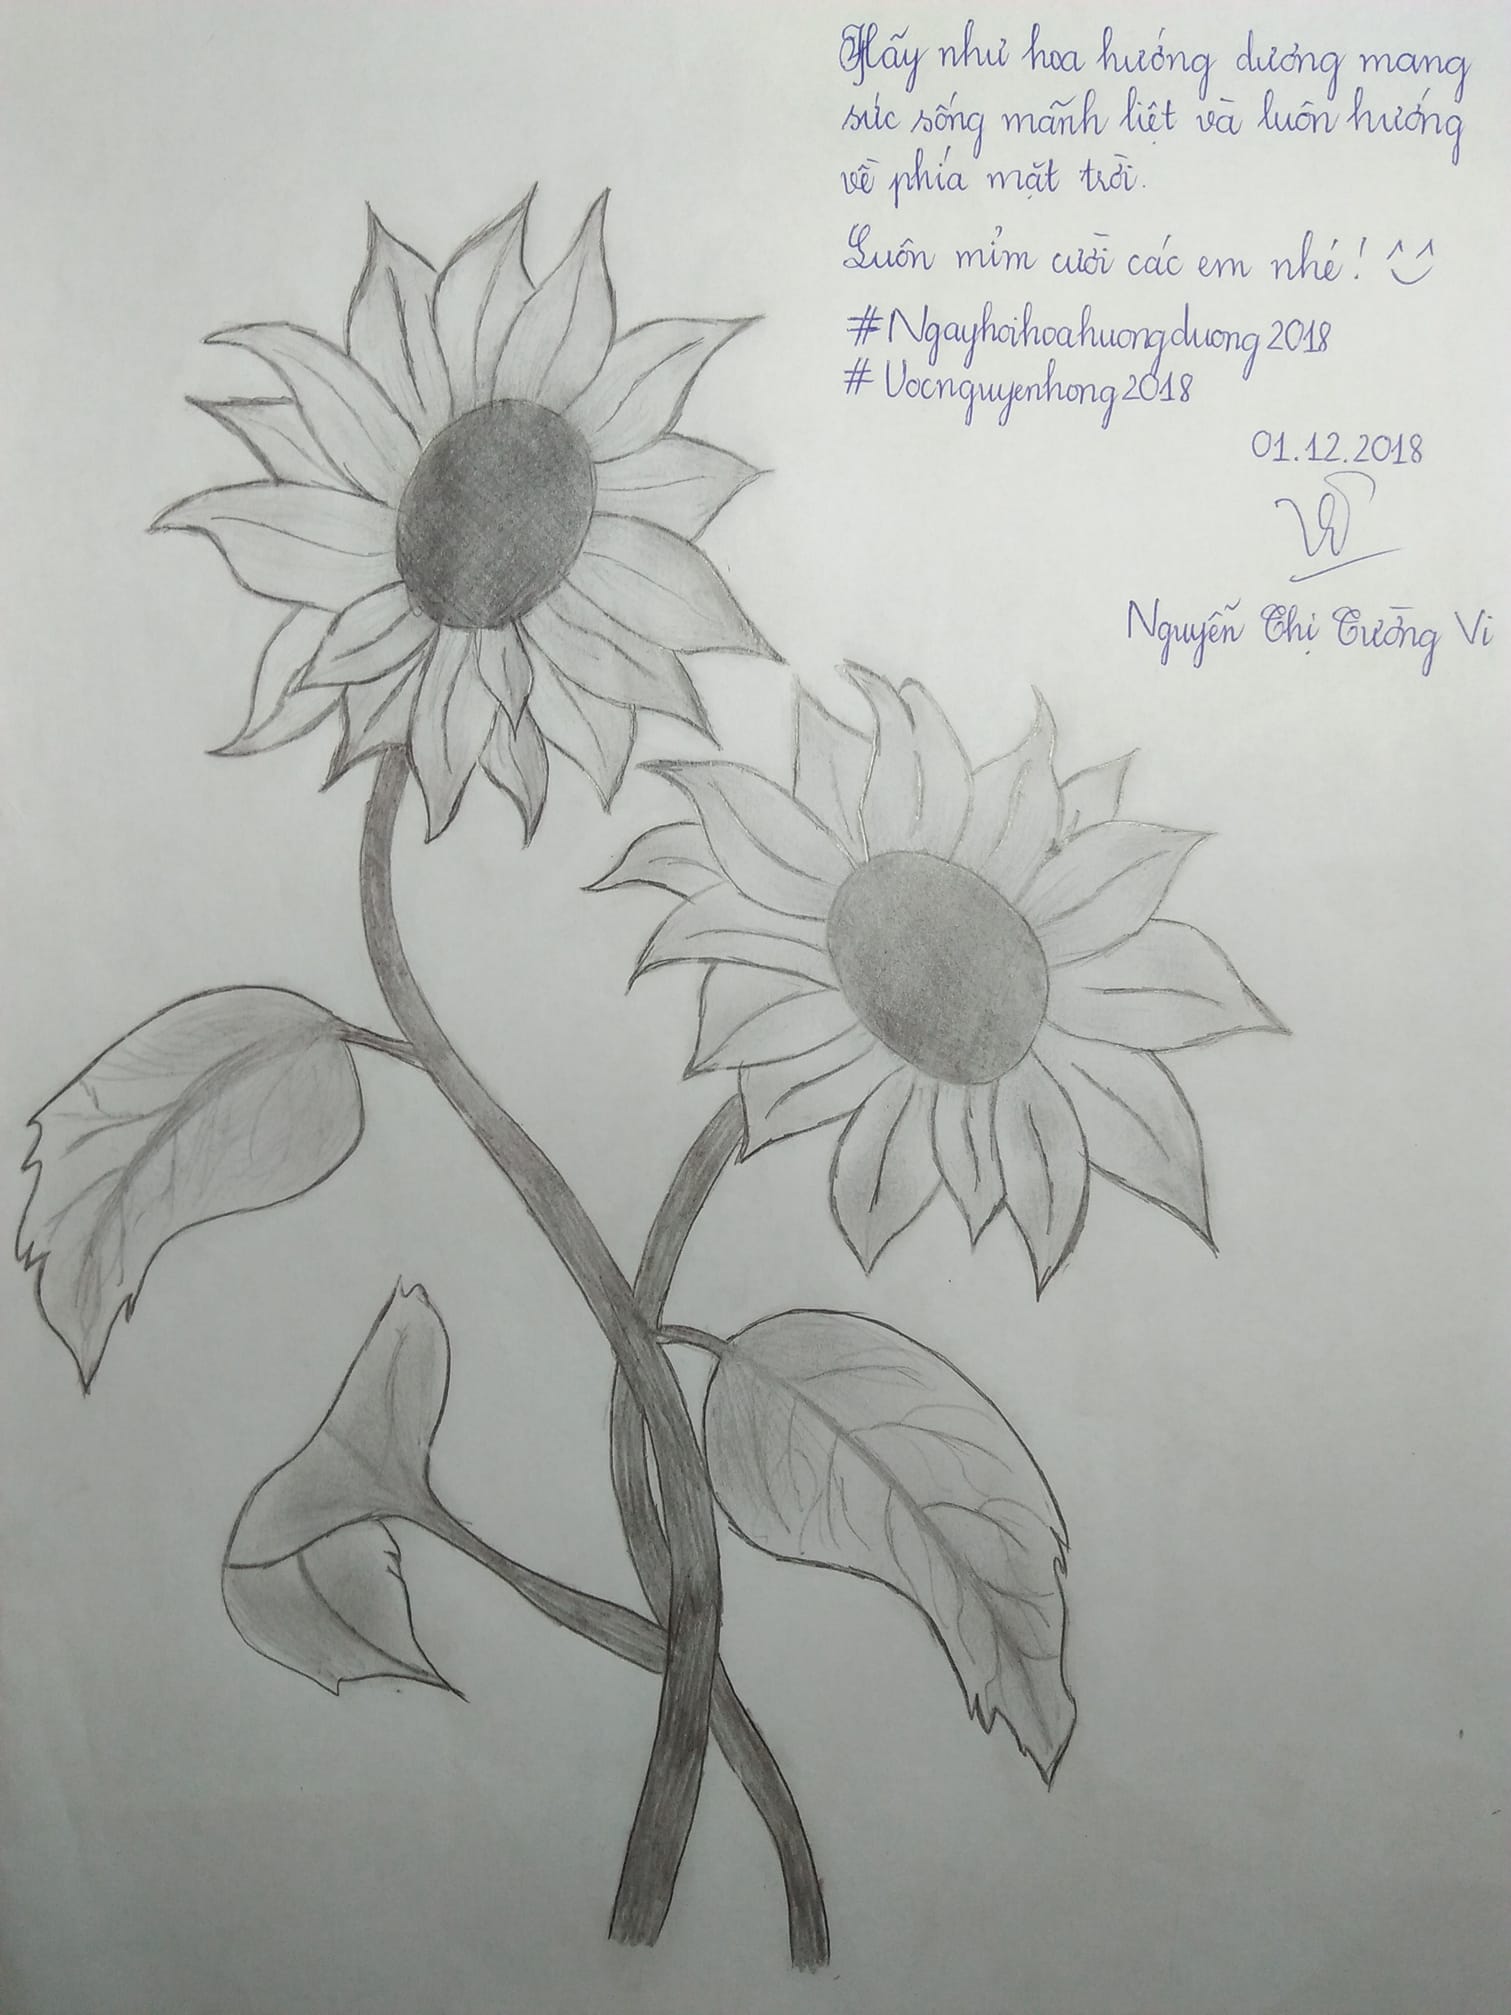 Hãy như hoa hướng dương mang
sức sống mãnh liệt và luôn hướng
về phía mặt trời.
Luôn mỉm cười các em nhé! ^‿^
#Ngayhoihoahuongduong2018
#Uocnguyenhong2018
01.12.2018
Nguyễn Thị Tường Vi